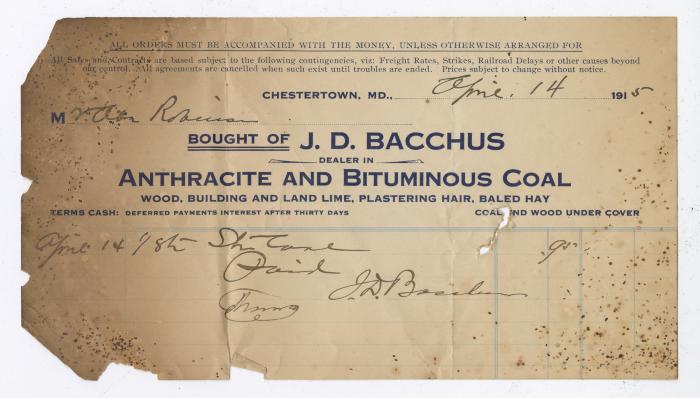 ALL ORDERS MUST BE ACCOMPANIED WITH THE MONEY, UNLESS OTHERWISE ARRANGED FOR
All Sales and Contracts are based subject to the following contingencies, viz: Freight Rates, Strikes, Railroad Delays or other causes beyond
our control. All agreements are cancelled when such exist until troubles are ended. Prices subject to change without notice.
CHESTERTOWN, MD., April 14 1915
Mr. Robinson
BOUGHT OF J. D. BACCHUS
DEALER IN
ANTHRACITE AND BITUMINOUS COAL
WOOD, BUILDING AND LAND LIME, PLASTERING HAIR, BALED HAY
TERMS CASH: DEFERRED PAYMENTS INTEREST AFTER THIRTY DAYS COAL AND WOOD UNDER COVER
April 14 Coal 95
Paid
J.D. Bacchus